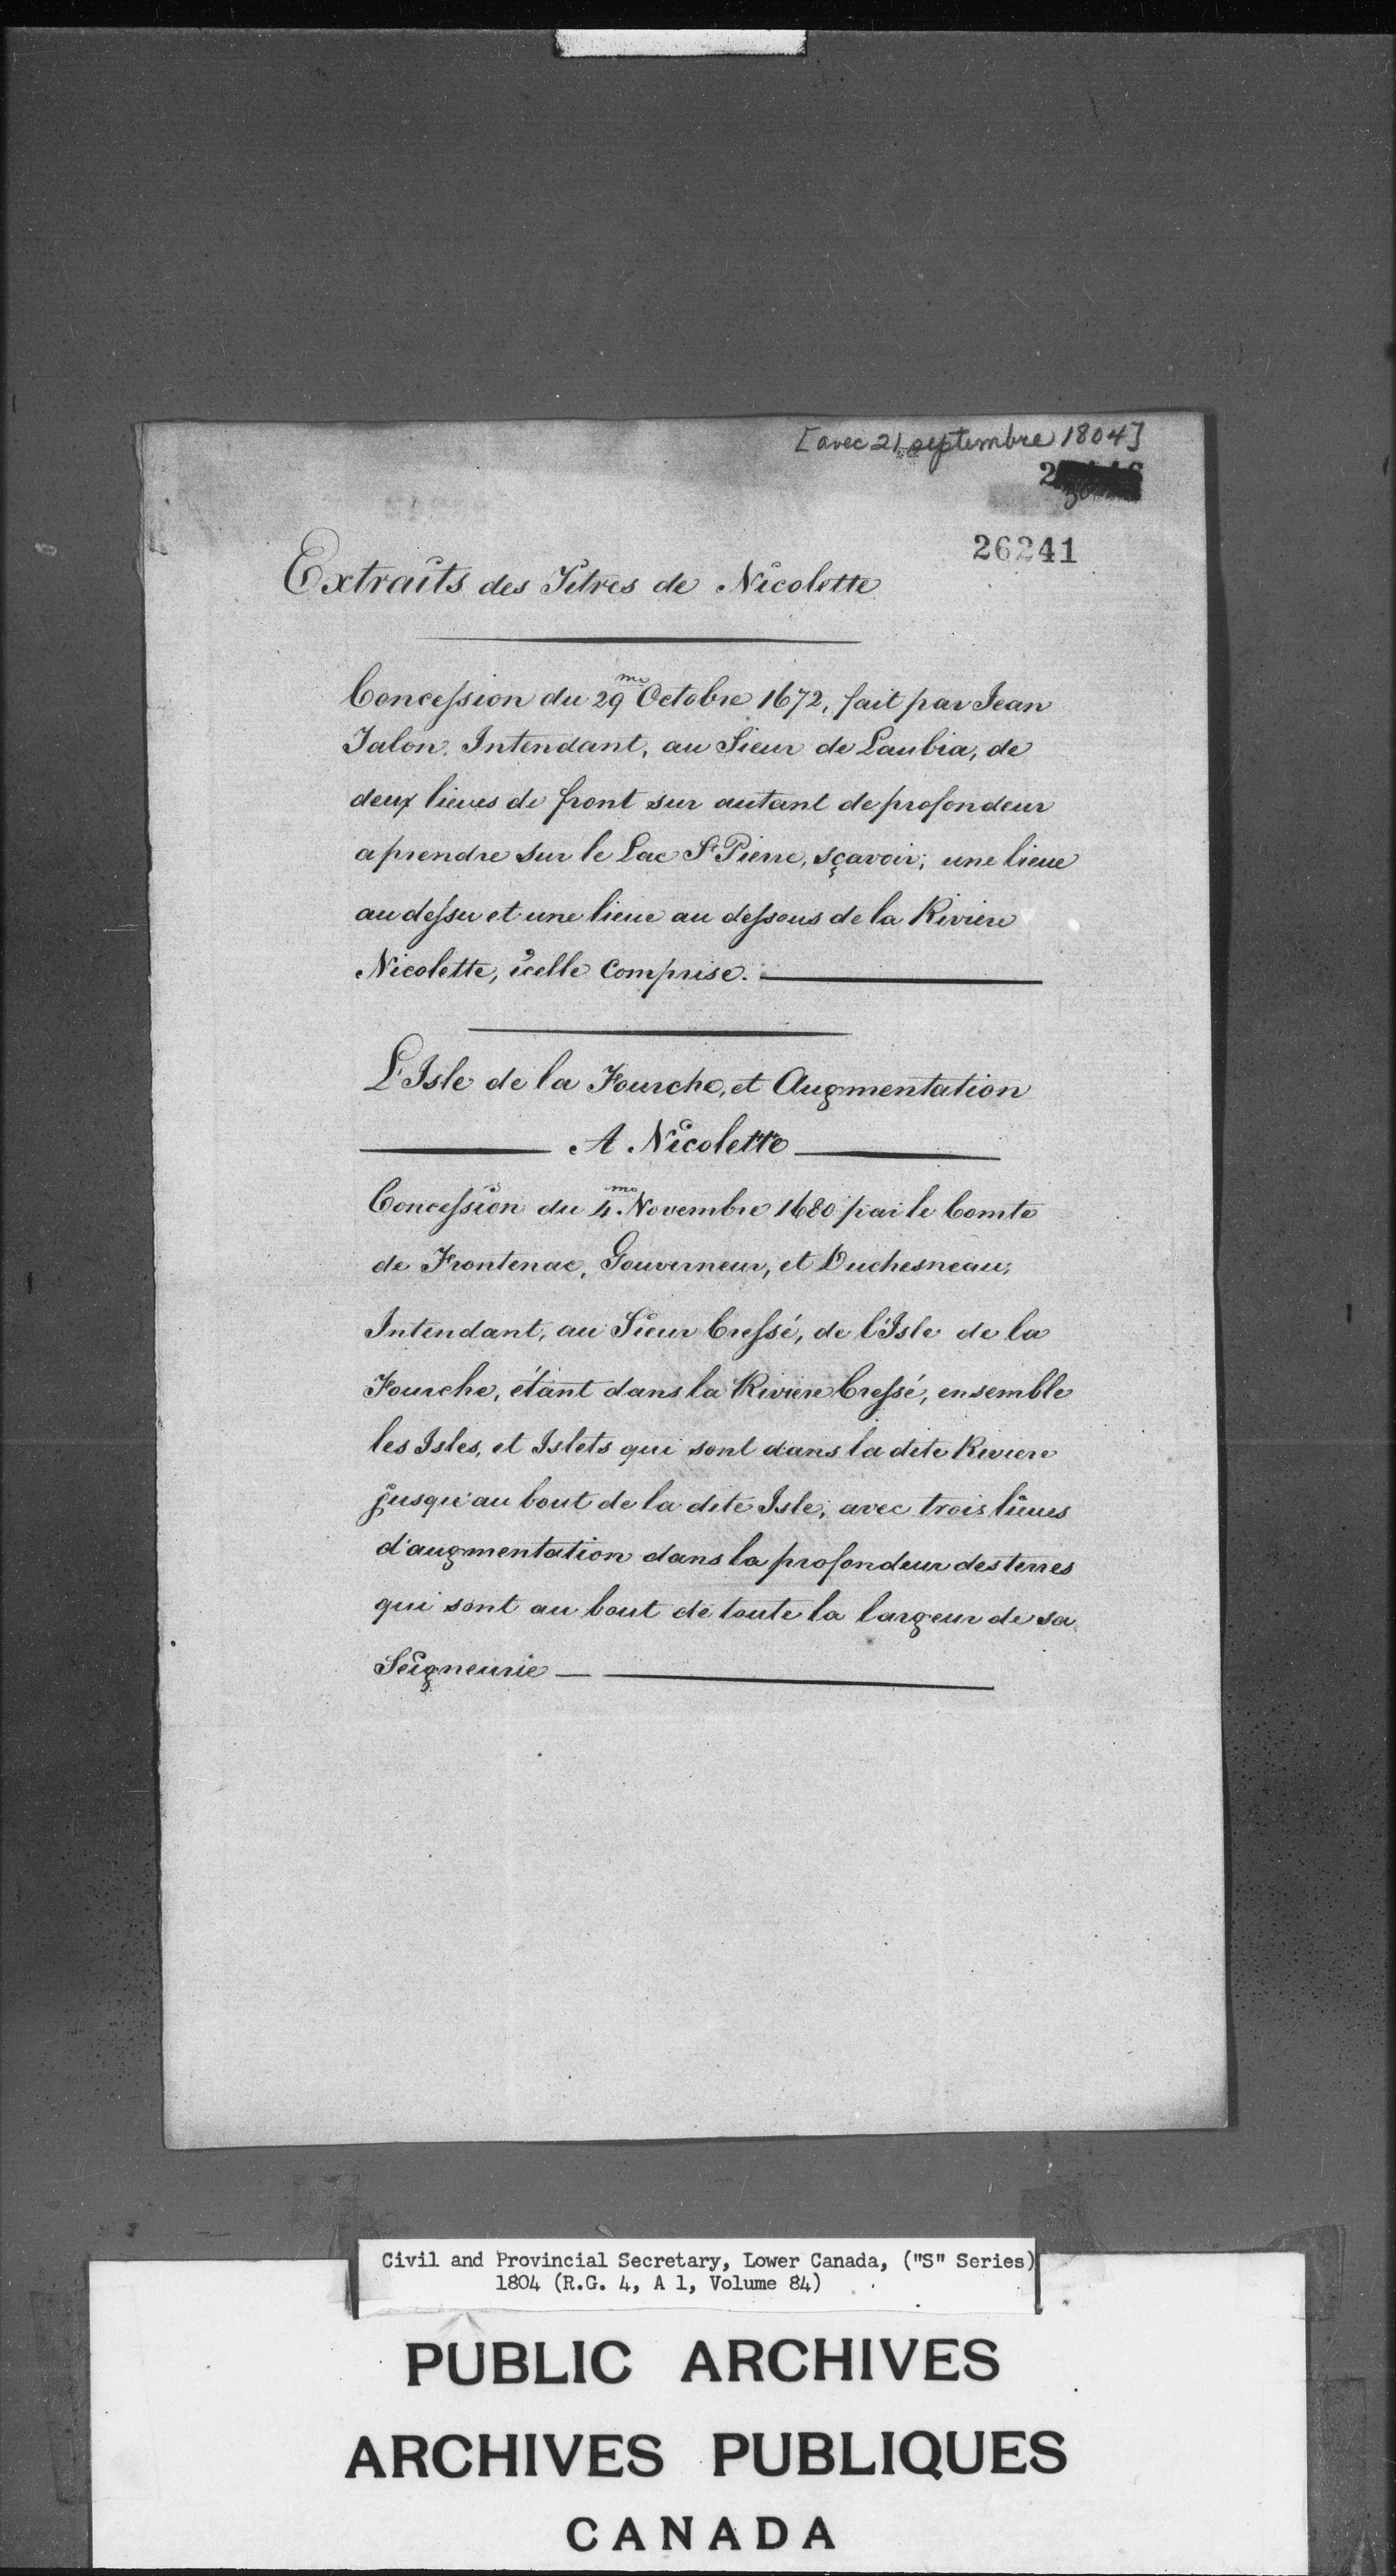 [avec 21 septembre 1804]
26241
Extraits des Titres de Nicolette
Concession du 29me Octobre 1672, fait par Jean
Talon, Intendant, au Sieur de Laubia, de
deux lieues de front sur autant de profondeur
a prendre sur le Lac St Pierre, sçavoir; une lieue
au dessu et une lieue au dessous de la Riviere
Nicolette, icelle Comprise.
L'Isle de la Fourche, et Augmentation
A Nicolette
Concession du 4me Novembre 1680 par le Comte
de Frontenac, Gouverneur, et Duchesneau,
Intendant, au Sieur Cressé, de l'Isle de la
Fourche, étant dans la Riviere Cressé, ensemble
les Isles, et Islets qui sont dans la dite Riviere
jusqu'au bout de la dite Isle, avec trois lieues
d'augmentation dans la profondeur des terres
qui sont au bout de toute la largeur de sa
Seigneurie
Civil and Provincial Secretary, Lower Canada, ("S" Series)
1804 (R.G. 4, A 1, Volume 84)
PUBLIC ARCHIVES
ARCHIVES PUBLIQUES
CANADA